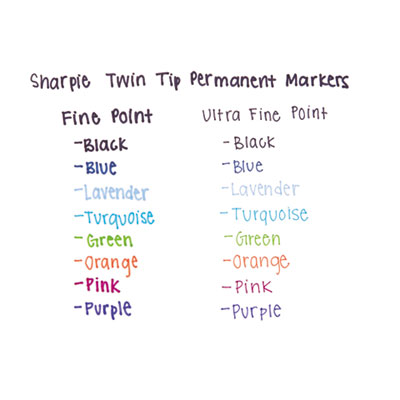 Sharpie Twin Tip Permanent Markers
Fine Point
-Black
-Blue
-Lavender
-Turquoise
-Green
-Orange
-Pink
-Purple
Ultra Fine Point
-Black
-Blue
-Lavender
-Turquoise
-Green
-Orange
-Pink
-Purple